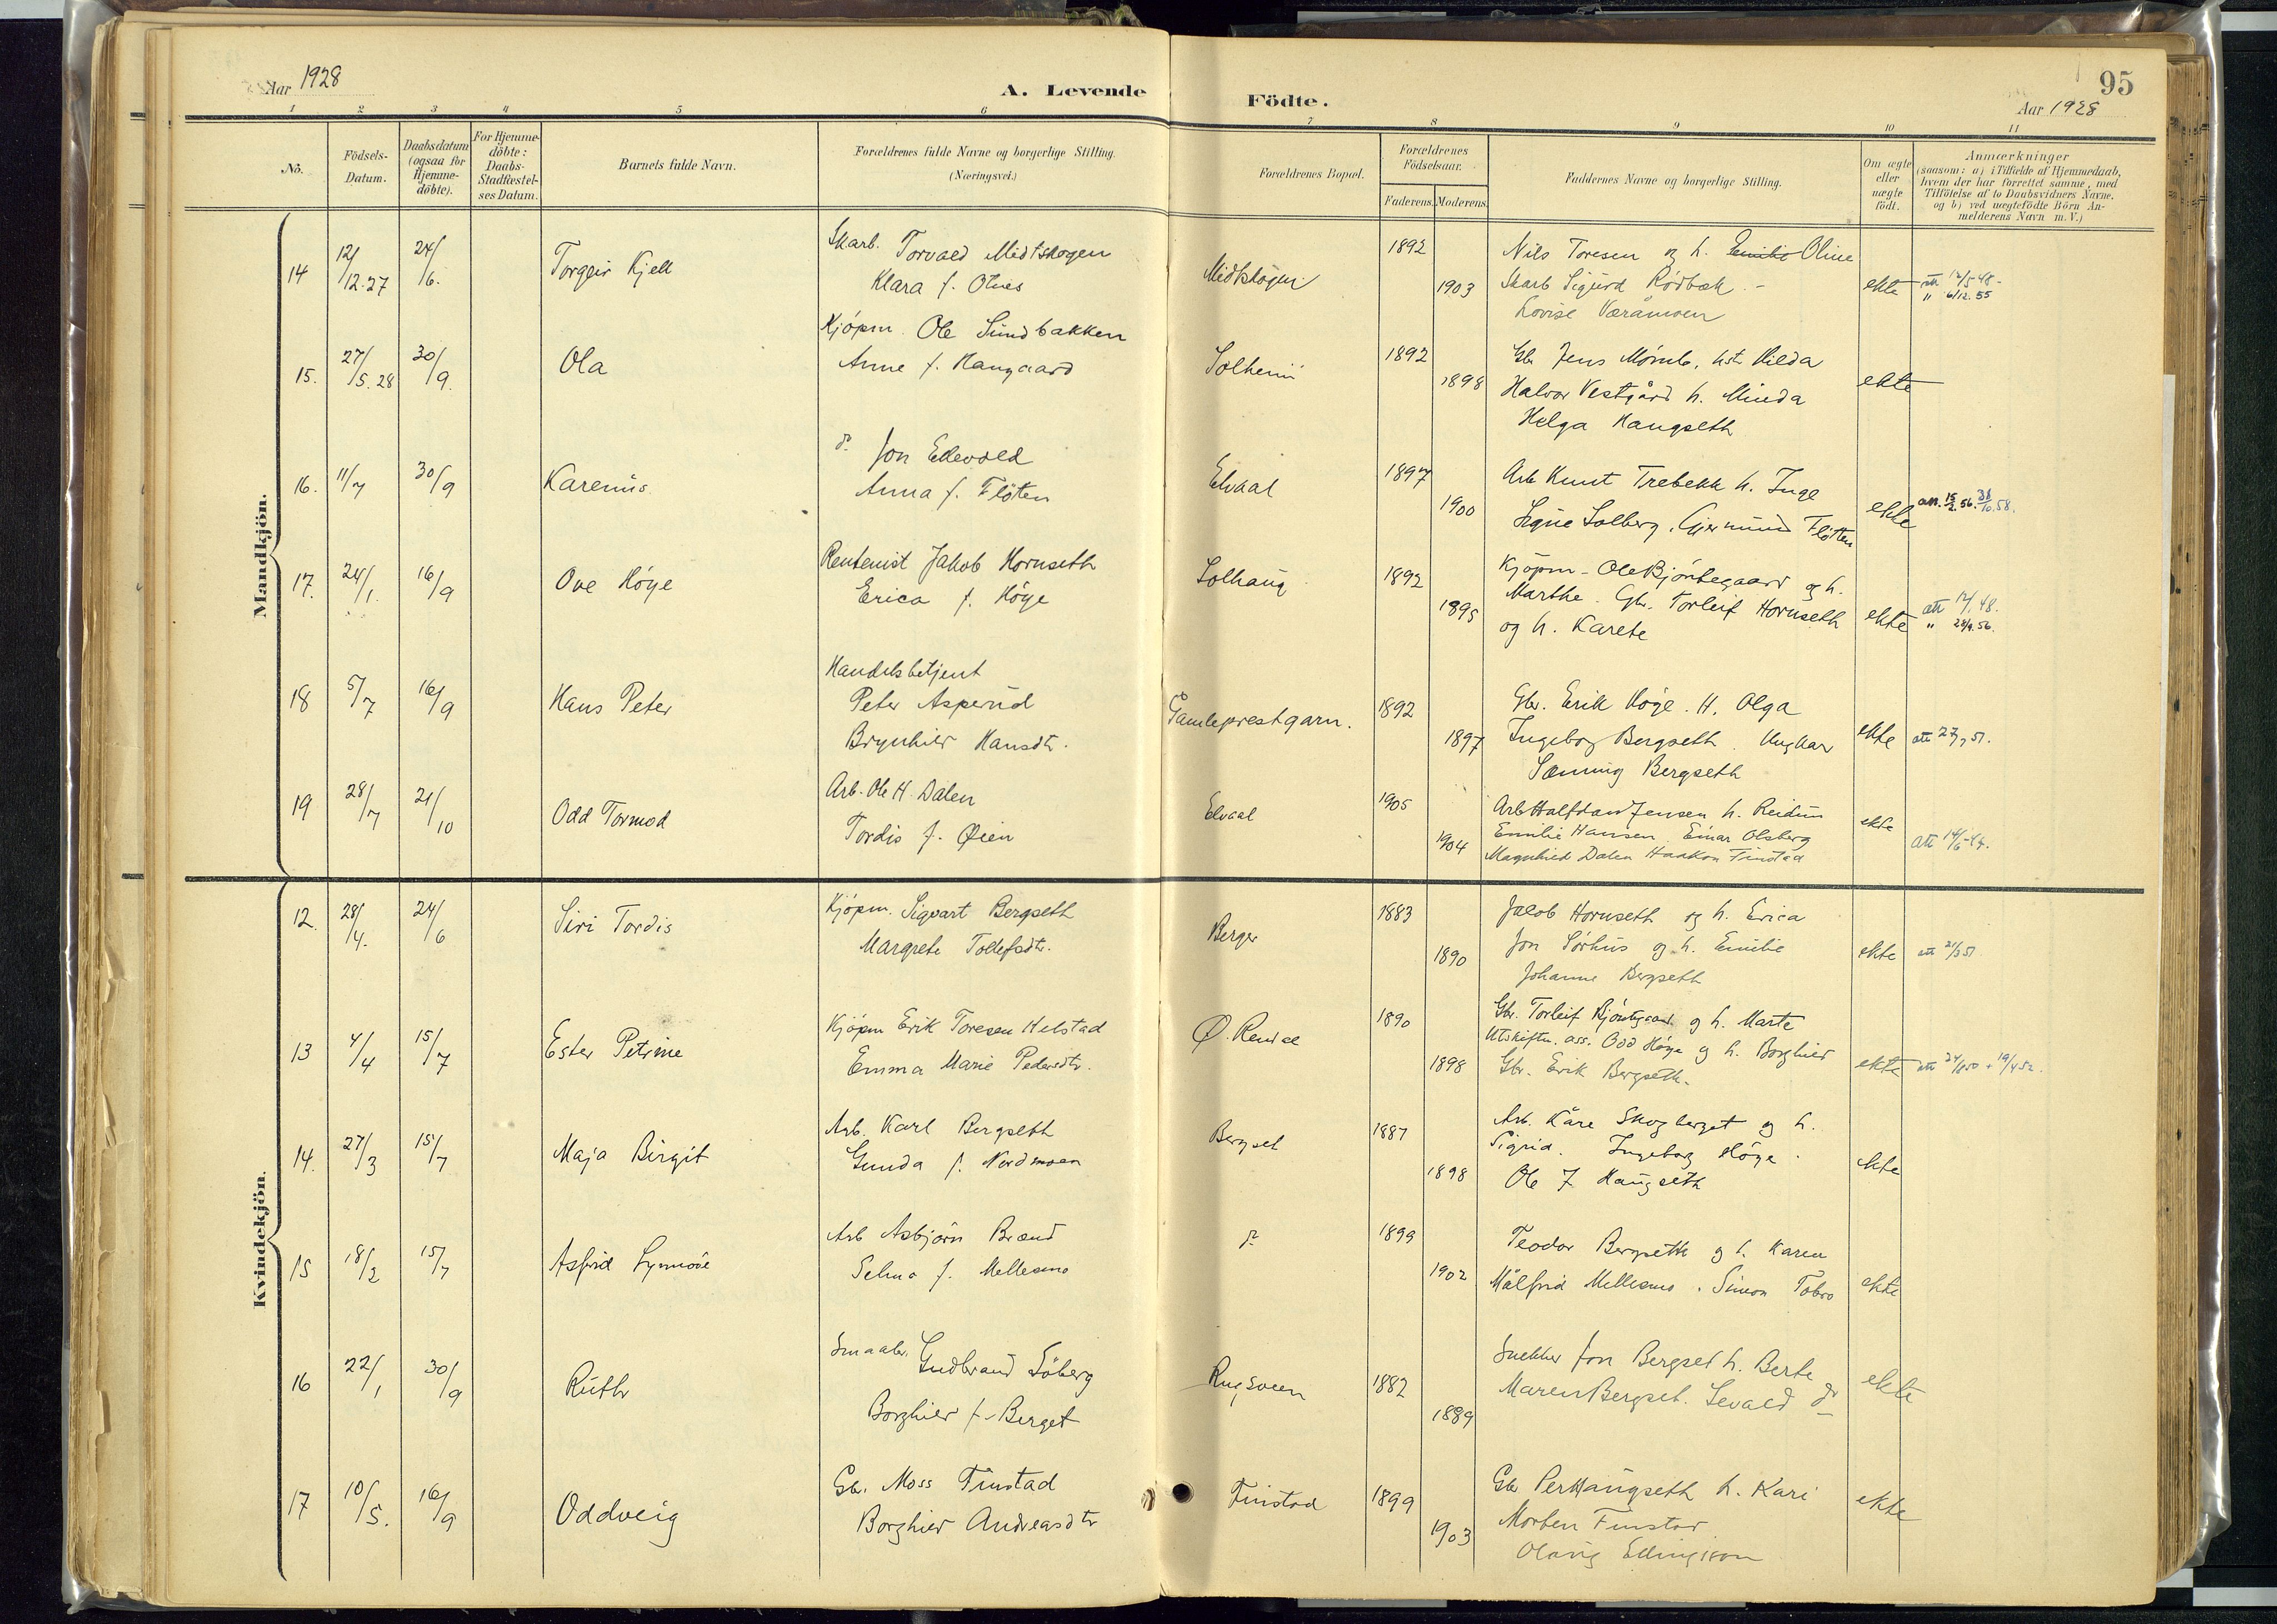 Aar 1928
A. Levende Födte.
95
Aar 1928
1 2 3 4 5 6 7 8 9 10 11
No.
Födsels-Datum.
Daabsdatum (ogsaa for Hjemmedöbte).
For Hjemmedöbte: Daabs-Stadfæstelses Datum.
Barnets fulde Navn.
Forældrenes fulde Navne og borgerlige Stilling. (Næringsvei.)
Forældrenes Bopæl.
Forældrenes Födselsaar.
Faderens. Moderens.
Faddernes Navne og borgerlige Stilling.
Om ægte eller uægte födt.
Anmærkninger
(saasom: a) i Tilfælde af Hjemmedaab,
hvem der har forrettet samme, med
Tilföielse af to Daabsvidners Navne.
og b) ved uægtefödte Börn Anmelderens Navn m. V.)
Mandkjön.
14 12/12.27 24/6. Torgeir Kjell
Skarb. Torvald Midtskogen
Klara f. Olnes
Midtskogen 1892 1903
Nils Toresen og h. Emilie Oline
Skarb Sigurd Rödbæk. -
Lovise Væråmoen
ekte att 12/5 48 -
" 6/12. 55
15. 27/5.28 30/9. Ola
Kjöpm. Ole Sundbakken
Anne f. Haugaard
Solheim 1892 1898
Gbr Jens Mömb. hst. Hilda
Halvor Vestgård h. Minda
Helga Haugseth
ekte
16. 11/7 30/9 Karenus
do Jon Ellevold
Anna f. Flöten
Elvaal 1897 1900
Arb Knut Trebekk h. Inge
Signe Solberg. Gjermund Flöten
ekte att. 15/2. 56.
17. 24/1. 16/9 Ove Höye
Rentenist Jakob Hornseth
Erica f. Höye
Solhaug 1892 1895
Kjöpm - Ole Bjöntegaard og h.
Marthe. Gbr. Torleif Hornseth
og h. Karete
ekte att 12/1. 48.
" 28/4. 56.
18 5/7 16/9 Hans Peter
Handelsbetjent
Peter Asperud
Brynhild Hansdtr.
Gamleprestgarn. 1892 1897
Gbr. Erik Höye. H. Olga
Ingeborg Bergseth. Ungkar
Sæming Bergseth
ekte
19 28/7 21/10 Odd Tormod
Arb. Ole H. Dalen
Tordis f. Øien
Elvaal 1905 1904
Arb Halfdan Jensen h. Reidun
Emilie Hansen. Einar Olsberg
Magnhild Dalen Haakon Finstad
ekte
Kvindekjön.
12. 28/4. 24/6 Siri Tordis
Kjöpm. Sigvart Bergseth
Margrete Tollefsdtr.
Berger 1883 1890
Jakob Hornseth og h. Erica
Jon Sörhus og h. Emilie
Johanne Bergseth
ekte
13 4/4 15/7 Ester Petrine
Kjöpm Erik Toresen Helstad
Emma Marie Pedersdtr.
Ø. Rendal 1890 1898
Gbr. Torleif Bjöntgaard og h. Marte
Utskiftn. ass. Odd Höye og h. Borghild
Gbr. Erik Bergseth.
ekte
14. 27/3 15/7 Maja Birgit
Arb. Karl Bergseth
Gunda f. Nordmoen
Bergset 1887 1898
Arb. Kåre Skogberget og h.
Sigrid. Ingeborg Höye.
Ole J. Haugseth
ekte
15 18/2 15/7 Asfrid Synnöve
Arb Asbjörn Brænd
Selma f. Mellesmo
do 1899 1902
Teodor Bergseth og h. Karen
Målfrid Mellesmo. Simon Tobro
ekte
16 22/1 30/9 Ruth
Smaabr. Gudbrand Söberg
Borghild f. Berget
Rugsveen 1882 1889
Snekker Jon Bergset h. Berte
Maren Bergset. Sevald do
ekte
17 10/5. 16/9 Oddveig
Gbr. Moss Finstad
Borghild Andreasdtr
Finstad 1899 1903
Gbr Per Haugseth h. Kari
Morten Finstad
Olaug Ellingsson
ekte